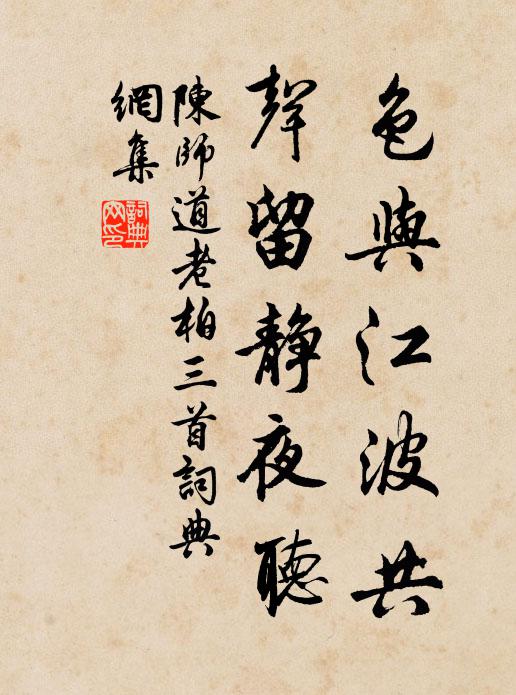 色與江波共
聲留静夜聽
陳師道老柏三首詞典
網集
詞典
网印